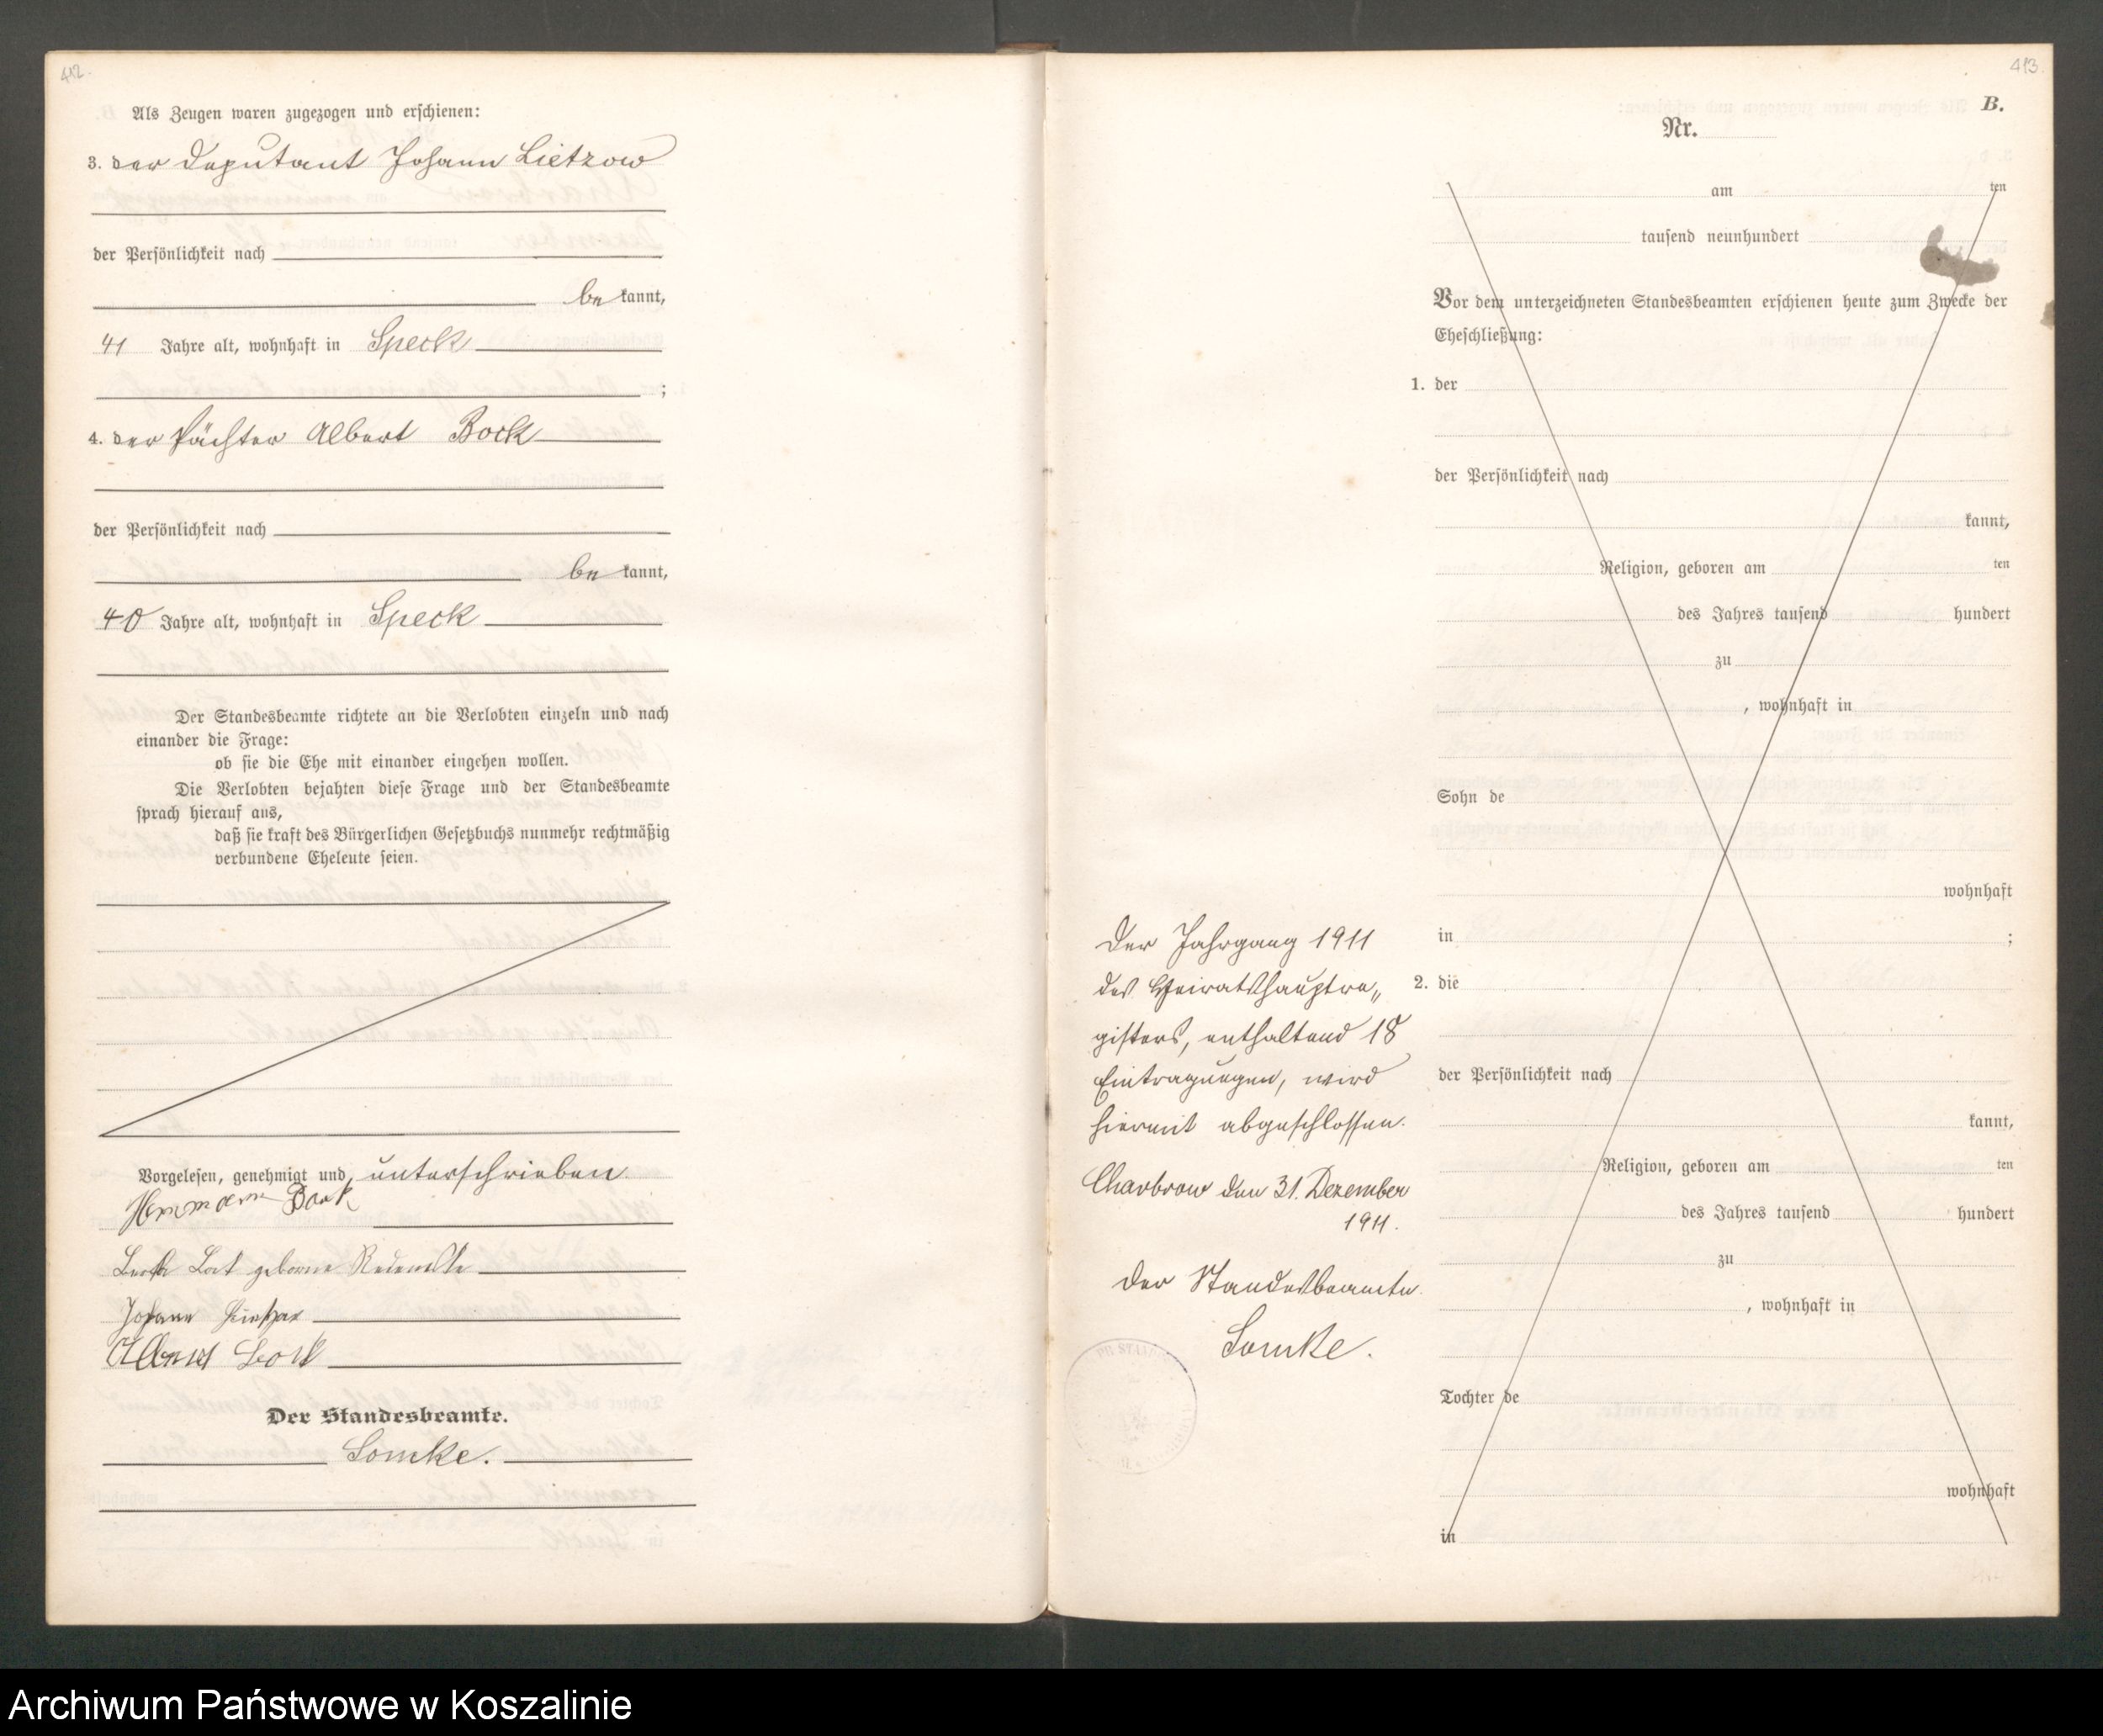 412.
Als Zeugen waren zugezogen und erschienen:
3. der Deputant Johann Lietzow
der Persönlichkeit nach
be kannt,
41 Jahre alt, wohnhaft in Speck
;
4. der Pächter Albert Bock
der Persönlichkeit nach
be kannt,
40 Jahre alt, wohnhaft in Speck
Der Standesbeamte richtete an die Verlobten einzeln und nach
einander die Frage:
ob sie die Ehe mit einander eingehen wollen.
Die Verlobten bejahten diese Frage und der Standesbeamte
sprach hierauf aus,
daß sie kraft des Bürgerlichen Gesetzbuchs nunmehr rechtmäßig
verbundene Eheleute seien.
Vorgelesen, genehmigt und unterschrieben
Hermann
geborne
Johann
Albert Bock
Der Standesbeamte.
Lomke.
413.
B.
Nr.
am ten
tausend neunhundert
Vor dem unterzeichneten Standesbeamten erschienen heute zum Zwecke der
Eheschließung:
1. der
der Persönlichkeit nach
kannt,
Religion, geboren am ten
des Jahres tausend hundert
zu
, wohnhaft in
Sohn de
wohnhaft
in ;
2. die
der Persönlichkeit nach
kannt,
Religion, geboren am ten
des Jahres tausend hundert
zu
, wohnhaft in
Tochter de
wohnhaft
in
Der Jahrgang 1911
des Heiratshauptre„
gisters, enthaltend 18
Eintragungen, wird
hiermit abgeschlossen.
Charbrow den 31. Dezember
1911.
Der Standesbeamte.
Lomke.
Archiwum Państwowe w Koszalinie